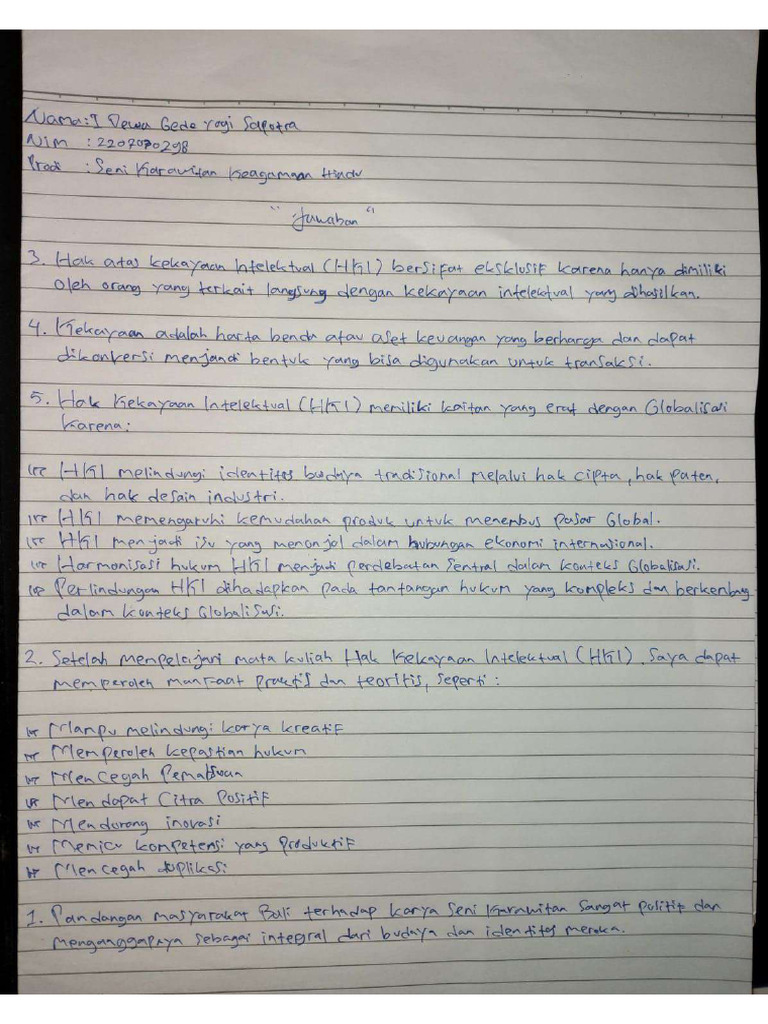 Nama : I Dewa Gede Yogi Saputra
Nim : 2207070298
Prodi : Seni Karawitan Keagamaan Hindu
"Jawaban"
3. Hak atas kekayaan Intelektual (HKI) bersifat eksklusif karena hanya dimiliki
oleh orang yang terkait langsung dengan kekayaan intelektual yang dihasilkan.
4. Kekayaan adalah harta benda atau aset keuangan yang berharga dan dapat
dikonversi menjandi bentuk yang bisa digunakan untuk transaksi.
5. Hak Kekayaan Intelektual (HKI) memiliki kaitan yang erat dengan Globalisasi
Karena:
HKI melindungi identitas budaya tradisional melalui hak cipta, hak paten,
dan hak desain industri.
HKI memengaruhi kemudahan produk untuk menembus pasar Global.
HKI menjadi isu yang menonjol dalam hubungan ekonomi internasional.
Harmonisasi hukum HKI menjadi perdebatan sentral dalam konteks Globalisasi.
Perlindungan HKI dihadapkan pada tantangan hukum yang kompleks dan berkembang
dalam konteks Globalisasi.
2. Setelah mempelajari mata kuliah Hak Kekayaan Intelektual (HKI) Saya dapat
memperoleh manfaat praktis dan teoritis, seperti :
Mampu melindungi karya kreatif
Memperoleh kepastian hukum
Mencegah Pemalsuan
Mendapat Citra Positif
Mendorong inovasi
Memicu kompetensi yang produktif
Mencegah duplikasi
1. Pandangan masyarakat Bali terhadap karya seni karawitan sangat politif dan
menganggapnya sebagai integral dari budaya dan identitas mereka.